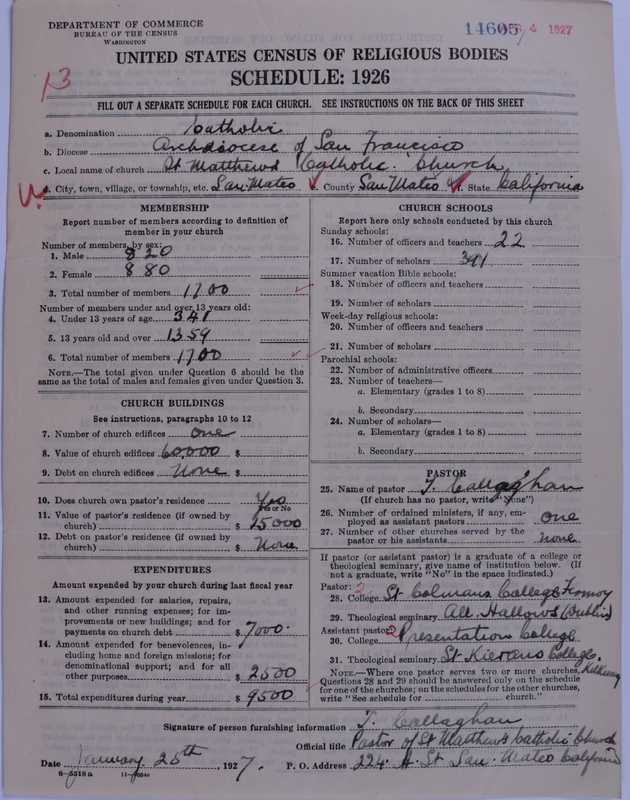 DEPARTMENT OF COMMERCE
BUREAU OF THE CENSUS
WASHINGTON
14605 4 1927
UNITED STATES CENSUS OF RELIGIOUS BODIES
SCHEDULE: 1926
13
FILL OUT A SEPARATE SCHEDULE FOR EACH CHURCH. SEE INSTRUCTIONS ON THE BACK OF THIS SHEET
a. Denomination Catholic
b. Diocese Archdiocese of San Francisco
c. Local name of church St Matthews Catholic Church
d. City, town, village, or township, etc. San Mateo e. County San Mateo f. State California
MEMBERSHIP
Report number of members according to definition of member in your church
Number of members, by sex:
1. Male 820
2. Female 880
3. Total number of members 1700
Number of members under and over 13 years old:
4. Under 13 years of age 341
5. 13 years old and over 1359
6. Total number of members 1700
NOTE.—The total given under Question 6 should be same as the total of males and females given under Question 3.
CHURCH BUILDINGS
See instructions, paragraphs 10 to 12
7. Number of church edifices one
8. Value of church edifices 60,000 $
9. Debt on church edifices None $
10. Does church own pastor's residence Yes
Yes or No
11. Value of pastor's residence (if owned by church) $ 15000
12. Debt on pastor's residence (if owned by church) $ None
EXPENDITURES
Amount expended by your church during last fiscal year
13. Amount expended for salaries, repairs, and other running expenses; for improvements or new buildings; and for payments on church debt $ 7000
14. Amount expended for benevolences, including home and foreign missions; for denominational support; and for all other purposes $ 2500
15. Total expenditures during year $ 9500
CHURCH SCHOOLS
Report here only schools conducted by this church
Sunday schools:
16. Number of officers and teachers 22
17. Number of scholars 391
Summer vacation Bible schools:
18. Number of officers and teachers
19. Number of scholars
Week-day religious schools:
20. Number of officers and teachers
21. Number of scholars
Parochial schools:
22. Number of administrative officers
23. Number of teachers—
a. Elementary (grades 1 to 8)
b. Secondary
24. Number of scholars—
a. Elementary (grades 1 to 8)
b. Secondary
PASTOR
25. Name of pastor T. Callaghan
(If church has no pastor, write "None")
26. Number of ordained ministers, if any, employed as assistant pastors one
27. Number of other churches served by the pastor or his assistants none
If pastor (or assistant pastor) is a graduate of a college or theological seminary, give name of institution below. (If not a graduate, write "No" in the space indicated.)
Pastor: 2
28. College St Colmans College Fermoy
29. Theological seminary All Hallows (Dublin)
Assistant pastor: 2
30. College Presentation College
31. Theological seminary St Kierans College, Kilkenny
NOTE.—Where one pastor serves two or more churches, Questions 28 and 29 should be answered only on the schedule for one of the churches; on the schedules for the other churches, write "See schedule for church."
Signature of person furnishing information T. Callaghan
Official title Pastor of St Matthews Catholic Church
Date January 25th, 1927. P. O. Address 224 A St San Mateo California
8—5518 a